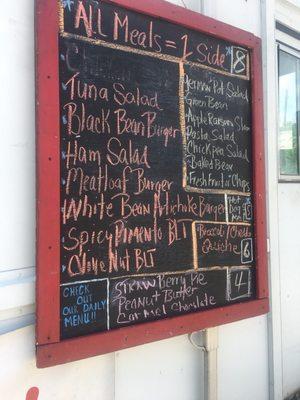 All Meals = 1 Side
8
Tuna Salad
Black Bean Burger
Ham Salad
Meatloaf Burger
White Bean Artichoke Burger
Spicy Pimento BLT
BLT
German Pot. Salad
Green Bean
Apple Raisin Slaw
Pasta Salad
Chickpea Salad
Baked Bean
Fresh Fruit Chips
Hot
Dog
5
Broccoli / Cheddar
Quiche
6
CHECK
OUT OUR
DAILY
MENU!!
STRAWBerry Pie
Peanut Butter
Caramel Chocolate
4